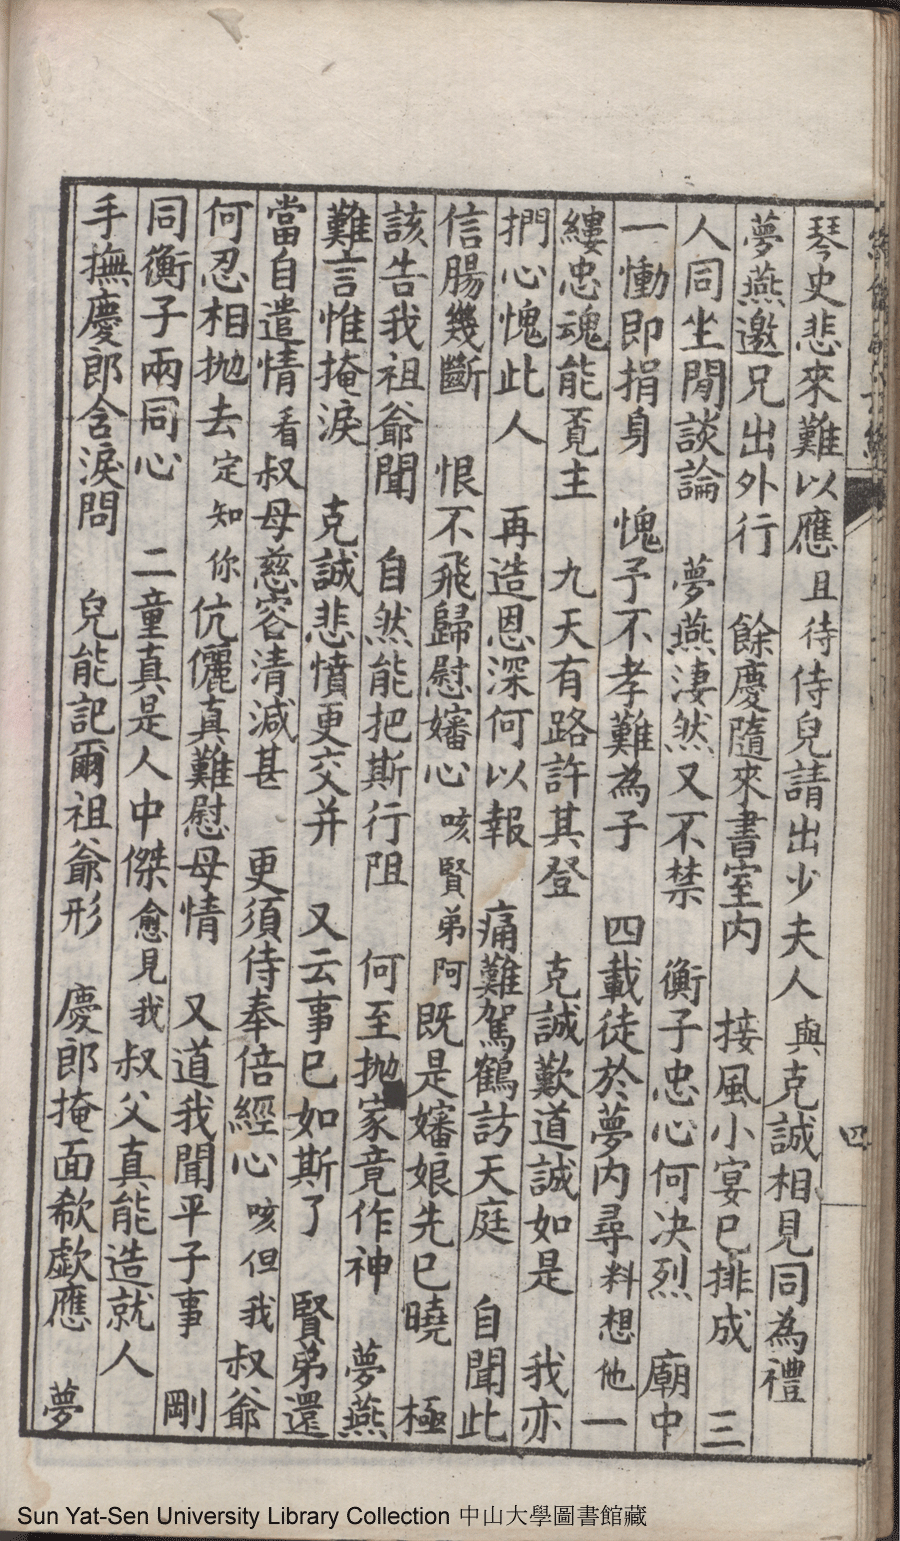 琴史悲來難以應且待侍兒請出少夫人與克誠相見同為禮
夢燕邀兄出外行　餘慶隨來書室内　接風小宴已排成　三
人同坐閒談論　夢燕淒然又不禁　衡子忠心何决烈　廟中
一慟即捐身　愧予不孝難為子　四載徒於夢内尋料想他一
縷忠魂能覔主　九天有路許其登　克誠歎道誠如是　我亦
捫心愧此人　再造恩深何以報　痛難駕鶴訪天庭　自聞此
信腸幾斷　恨不飛歸慰嬸心咳賢弟阿既是嬸娘先已曉　極
該告我祖爺聞　自然能把斯行阻　何至抛家竟作神　夢燕
難言惟掩淚　克誠悲憤更交并　又云事已如斯了　賢弟還
當自遣情看叔母慈容清減甚　更須侍奉倍經心咳但我叔爺
何忍相抛去定知你伉儷真難慰母情　又道我聞平子事　剛
同衡子兩同心　二童真是人中傑愈見我叔父真能造就人
手撫慶郎含淚問　兒能記爾祖爺形　慶郎掩面欷歔應　夢
四
Sun Yat-Sen University Library Collection 中山大學圖書館藏